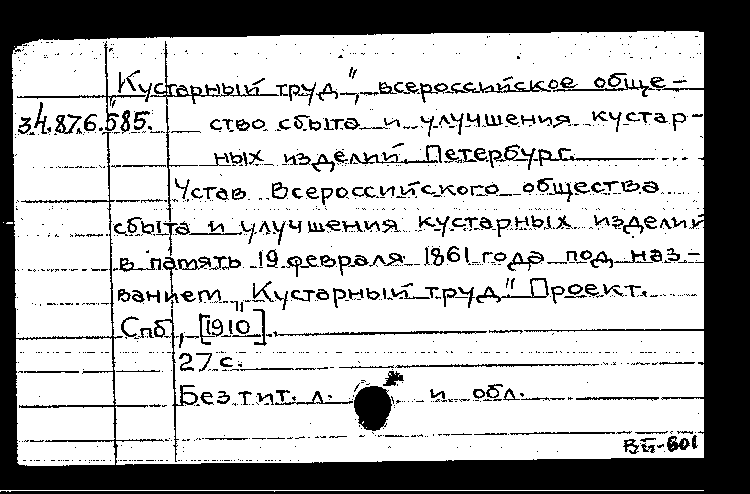 Кустарный труд", всероссийское обще-
34.87.6.585. ство сбыта и улучшения кустар-
ных изделий. Петербург.
Устав Всероссийского общества
сбыта и улучшения кустарных изделий
в память 19 февраля 1861 года под наз-
ванием „Кустарный труд" Проект.
Спб, [1910].
27 с.
Без тит. л. и обл.
ВБ-601